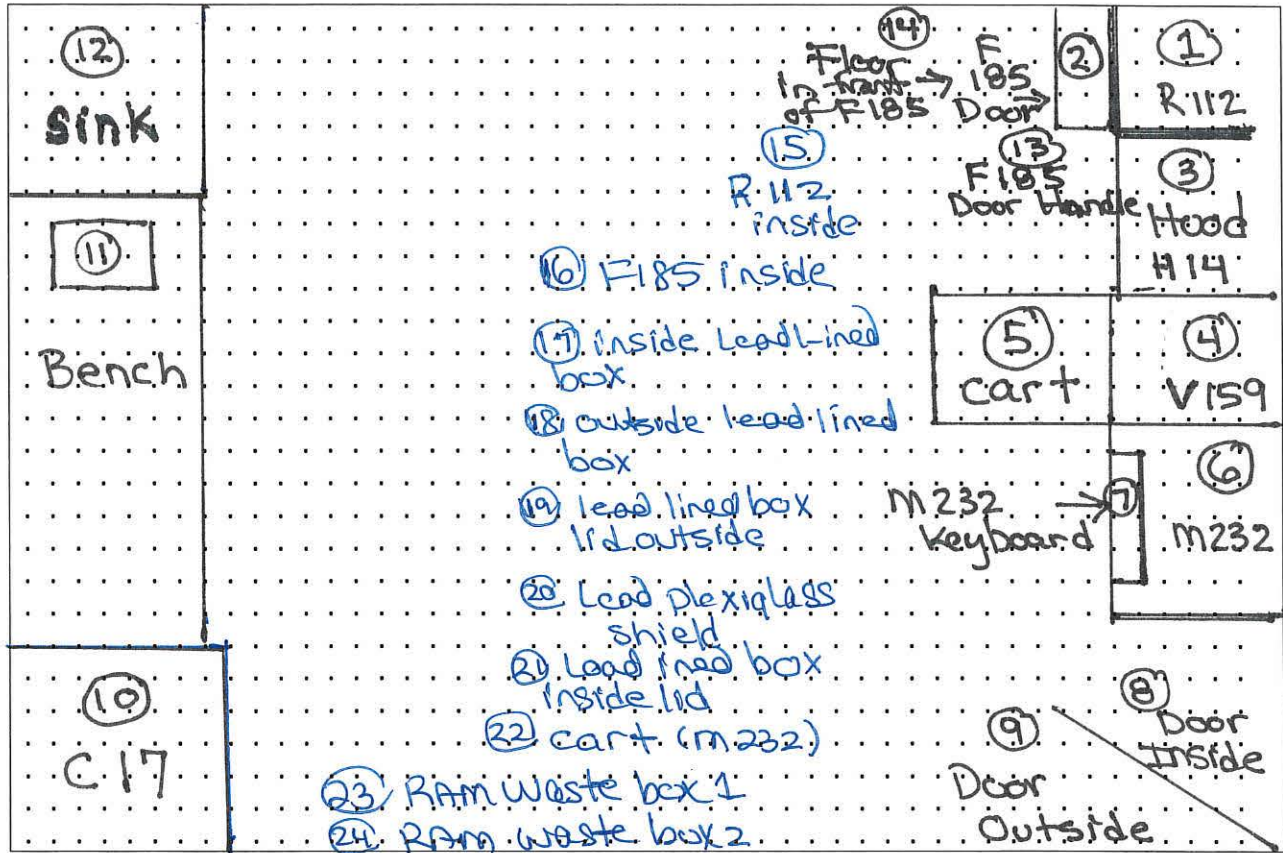 12
sink
11
Bench
10
C 17
14
Floor
in front
of F185
F
185
Door
2
1
R 112
13
F185
Door Handle
3
Hood
H14
15
R 112
inside
16 F185 inside
17 inside Lead Lined
box
18 outside lead lined
box
19 lead lined box
lid outside
20 Lead plexiglass
shield
21 Lead ined box
inside lid
22 cart (M232)
23 RAM Waste box 1
24 RAM waste box 2
5
cart
4
V159
M232
Keyboard
7
6
M232
8
Door
Inside
9
Door
Outside